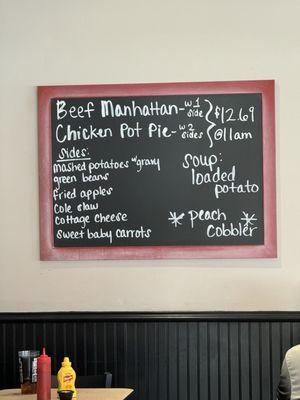 Beef Manhattan - w 1 side } $12.69
Chicken Pot Pie - w 2 sides } @11am
Sides:
mashed potatoes w/gravy
green beans
fried apples
Cole slaw
cottage cheese
sweet baby carrots
soup:
loaded
potato
* peach *
cobbler